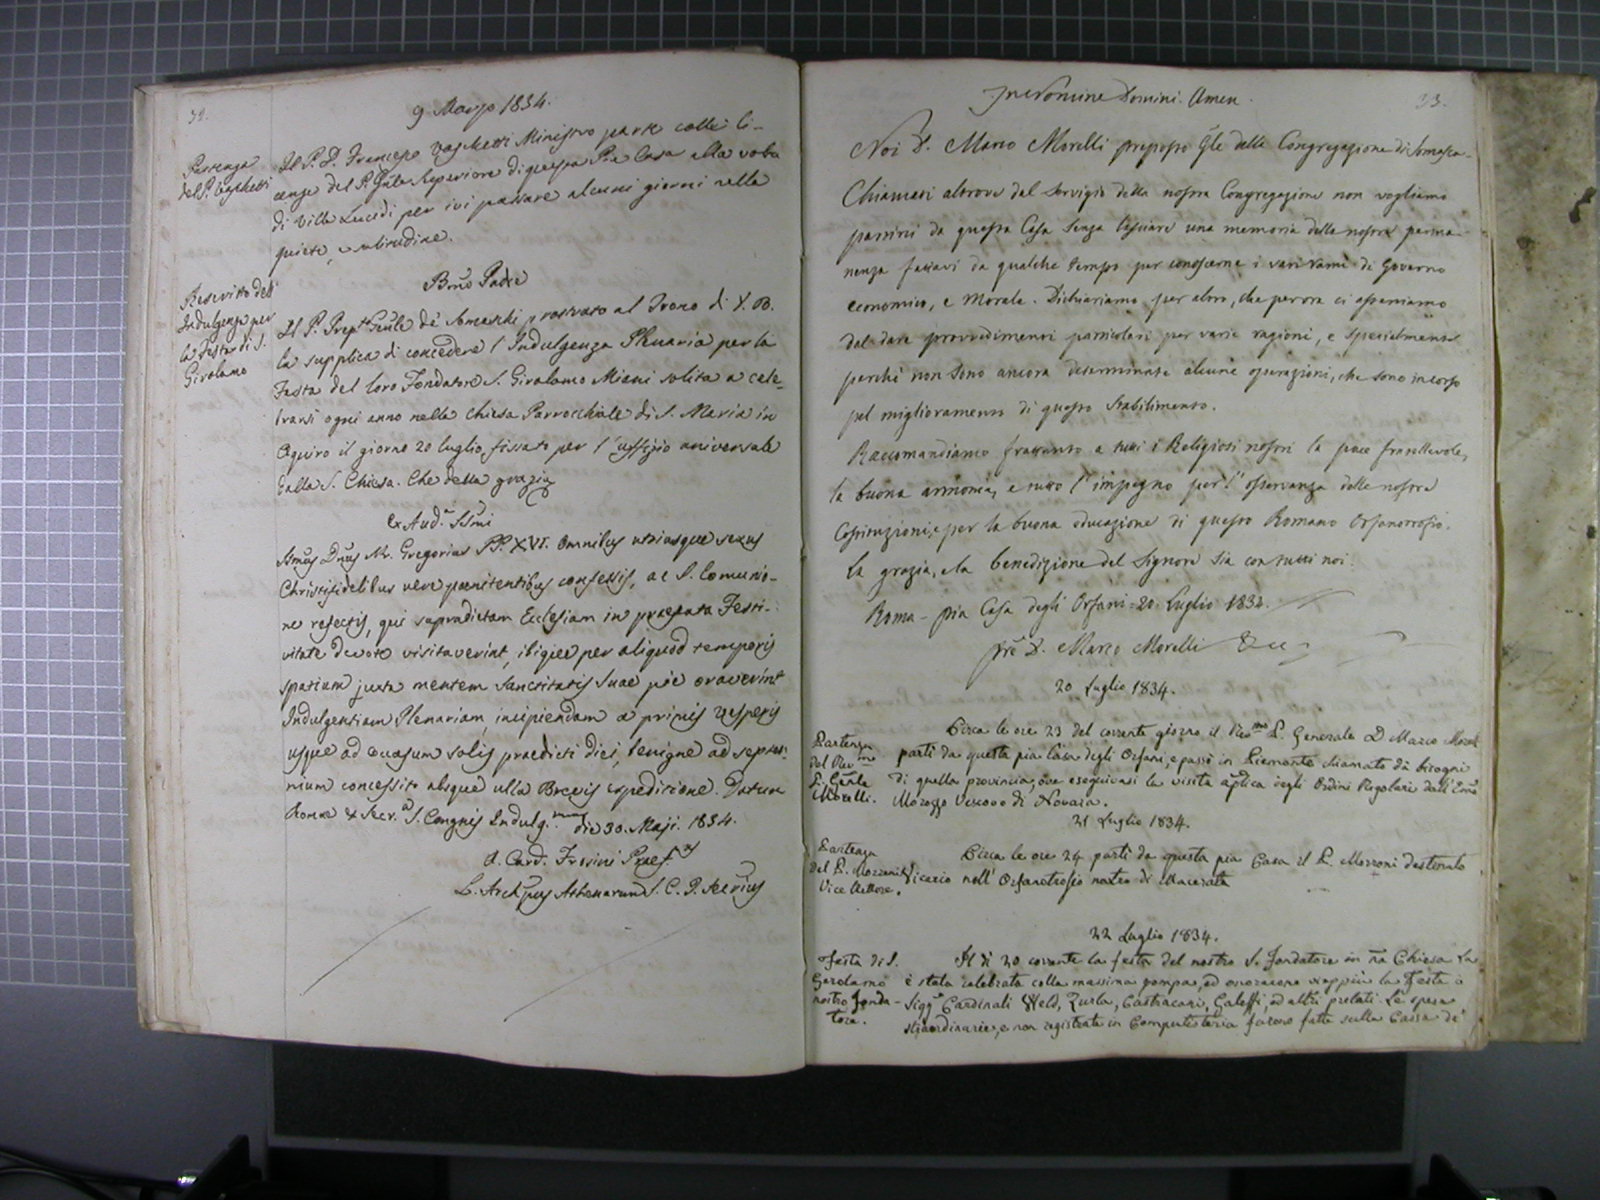 32.
9 Marzo 1834.
Partenza
del P. Vaschetti
Il P. D. Francesco Vaschetti Ministro parte colla li-
cenza del P. Gnle Superiore di questa Pia Casa alla volta
di Villa Lucidi per ivi passare alcuni giorni nella
quiete, e solitudine.
Rescritto dell'
Indulgenza per
la Festa di S.
Girolamo
Bmo Padre
Il P. Prepto Gnle de' Somaschi prostrato al Trono di V. B.
la supplica di concedere l'Indulgenza Plenaria per la
Festa del loro Fondatore S. Girolamo Miani solita a cele-
brarsi ogni anno nella Chiesa Parrocchiale di S. Maria in
Aquiro il giorno 20 luglio, fissato per l'uffizio universale
dalla S. Chiesa. Che della grazia
Ex Aud.a SSmi
SSmus Dnus Nr. Gregorius PP. XVI. Omnibus utriusque sexus
Christifidelibus vere poenitentibus confessis, ac S. Comunio-
ne refectis, qui supradictam Ecclesiam in praefata Festi-
vitate devote visitaverint, ibique per aliquod temporis
spatium juxta mentem Sanctitatis Suae pie oraverint
Indulgentiam Plenariam, incipiendam a primis Vesperis
usque ad occasum solis praedicti diei, benigne ad septen-
nium concessit absque ulla Brevis expeditione. Datum
Romae ex Secr.a S. Congnis Indulg.rum die 30. Maji. 1834.
A. Card. Frosini Praef.us
L. Archpus Athenarum S. C. P. Secrius
33.
In Nomine Domini. Amen.
Noi D. Marco Morelli preposto Gle della Congregazione di Somasca.
Chiamati altrove dal servigio della nostra Congregazione non vogliamo
partirci da questa Casa senza lasciare una memoria della nostra perma-
nenza fattavi da qualche tempo per conoscerne i vari rami di Governo
economico, e morale. Dichiariamo per altro, che per ora ci asteniamo
dal dare provvedimenti particolari per varie ragioni, e specialmente
perchè non sono ancora determinate alcune operazioni, che sono in corso
pel miglioramento di questo Stabilimento.
Raccomandiamo frattanto a tutti i Religiosi nostri la pace fratellevole,
la buona armonia, e tutto l'impegno per l'osservanza delle nostre
Costituzioni, e per la buona educazione di questo Romano Orfanotrofio.
La grazia, e la benedizione del Signore sia con tutti noi.
Roma - pia Casa degli Orfani - 20. Luglio 1834.
pre D. Marco Morelli
20 Luglio 1834.
Partenza
del Rev.mo
P. Gnrle
Morelli.
Circa le ore 23 del corrente giorno il Rev.mo P. Generale D Marco Morelli
partì da questa pia Casa degli Orfani, e passò in Piemonte chiamato da bisogni
di quella provincia, ove eseguivasi la visita aplica degli Ordini Regolari dall'Emo
Morozzo Vescovo di Novara.
21 Luglio 1834.
Partenza
del P. Mozzoni
Vice Rettore.
Circa le ore 24 partì da questa pia Casa il P. Mozzoni destinato
Vicario nell'Orfanotrofio nostro di Macerata
22 Luglio 1834.
Festa di S.
Gerolamo
nostro Fonda-
tore.
Il dì 20 corrente la festa del nostro S. Fondatore in nra Chiesa
è stata celebrata colla massima pompa, ed onorarono viappiù la Festa i
Sigg.i Cardinali Weld, Zurla, Castracani, Galeffi, ed altri prelati. Le spese
straordinarie, e non registrate in Computisteria furono fatte sulla Cassa de'